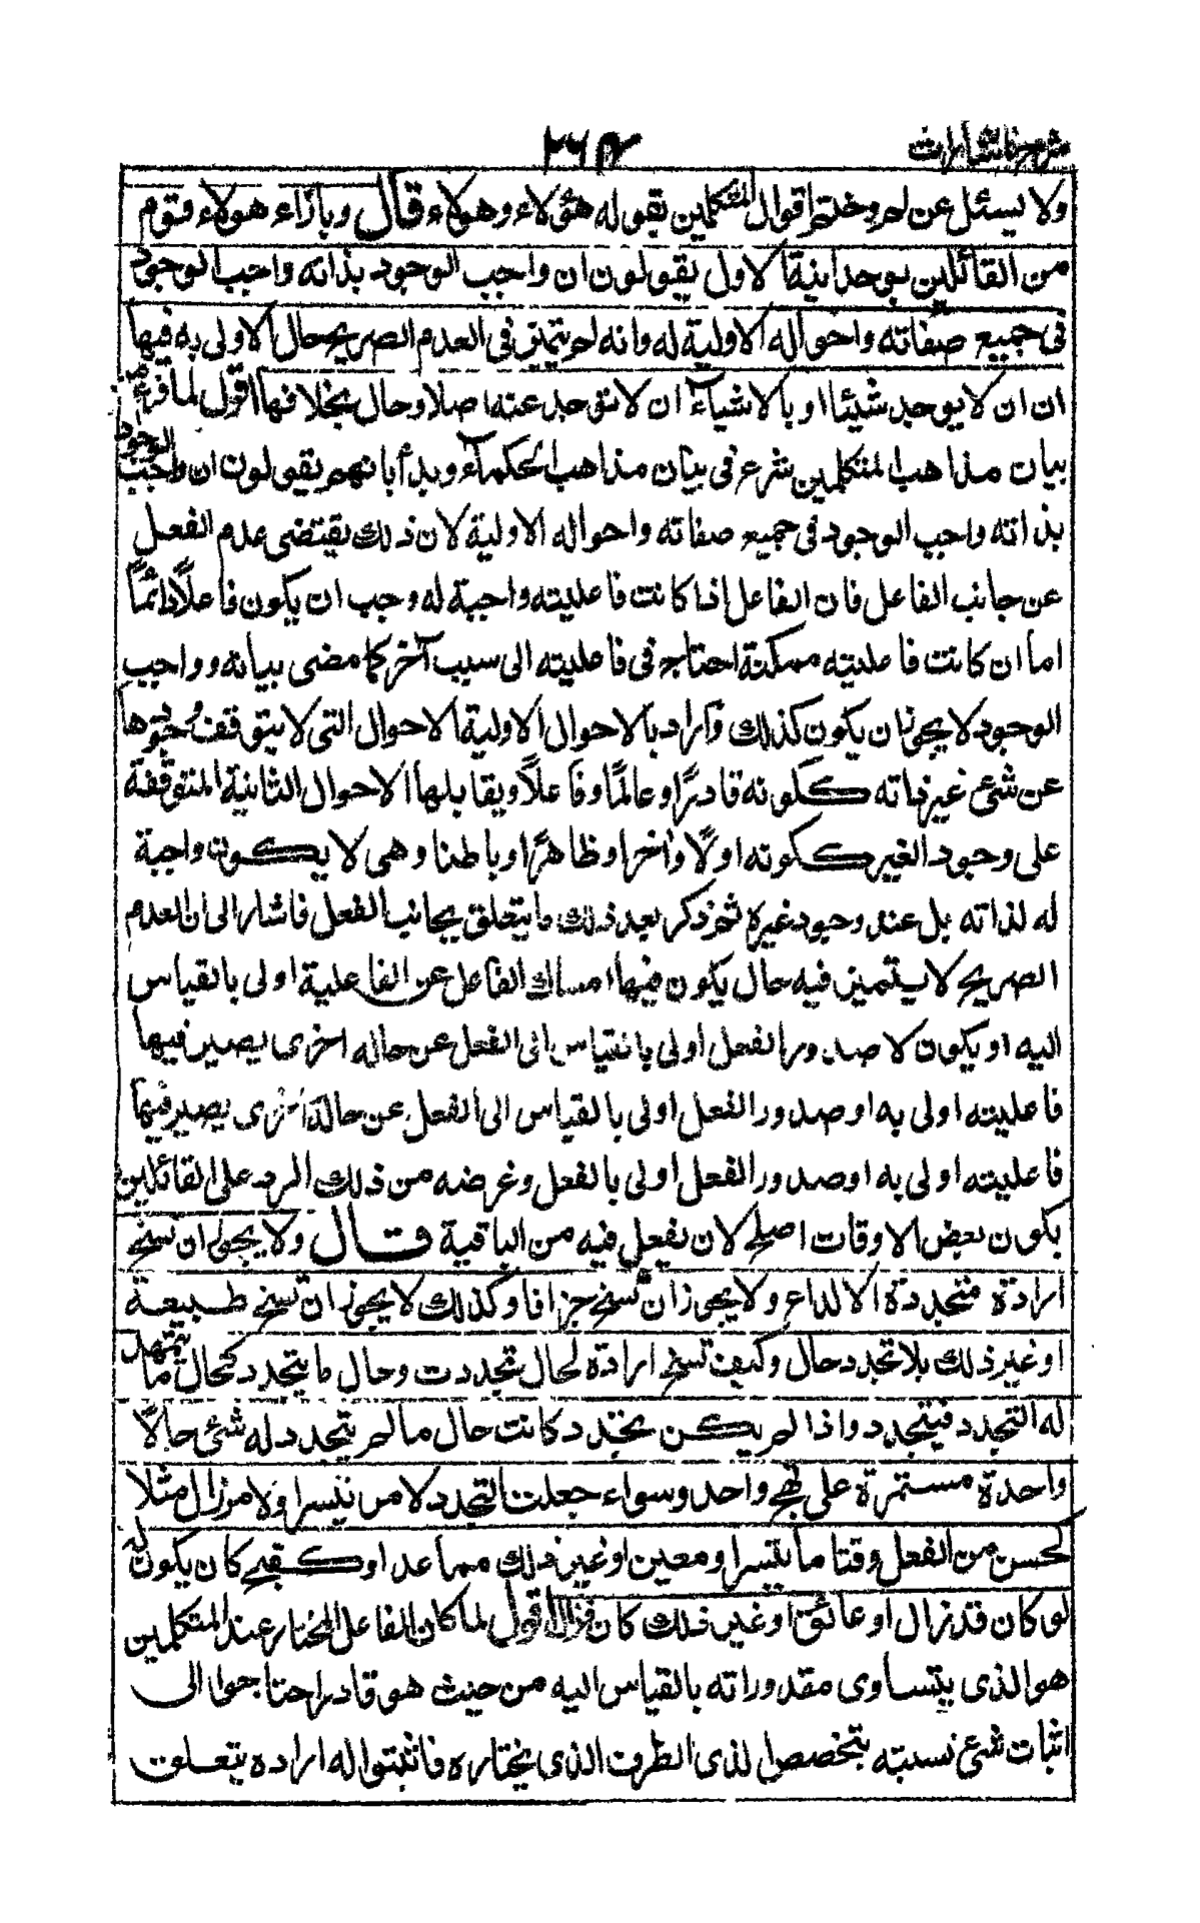 شرح اشارات
ولا يسئل عن لم وختم اقوال المتكلمين بقوله هؤلاء وهؤلاء قال وبازاء هولاء قوم
من القائلين بوحدانية الاول يقولون ان واجب الوجود بذاته واجب الوجود
فى جميع صفاته واحواله الاولية له وانه لم يتميز فى العدم الصريح حال الاولى به فيها
ان ان لا يوجد شيئا او بالاشياء ان لا توجد عنه اصلا وحال بخلافها اقول لما فرغ من
بيان مذاهب المتكلمين شرع فى بيان مذاهب الحكماء وبدأ بانهم يقولون ان واجب الوجود
بذاته واجب الوجود فى جميع صفاته واحواله الاولية لان ذلك يقتضى عدم الفعل
عن جانب الفاعل فان الفاعل اذا كانت فاعليته واجبة له وجب ان يكون فاعلاً دائماً
اما ان كانت فاعليته ممكنة احتاج فى فاعليته الى سبب آخر كما مضى بيانه وواجب
الوجود لا يجوز ان يكون كذلك واراد بالاحوال الاولية الاحوال التى لا يتوقف وجودها
عن شئ غير ذاته ككونه قادرًا وعالمًا وفاعلاً ويقابلها الاحوال الثانية المتوقفة
على وجود الغير ككونه اولًا وآخرا وظاهرًا وباطنا وهى لا يكون واجبة
له لذاته بل عند وجود غيره ثم ذكر بعد ذلك ما يتعلق بجانب الفعل فاشار الى ان العدم
الصريح لا يتميز فيه حال يكون فيها امساك الفاعل عن الفاعلية اولى بالقياس
اليه او يكون لا صدور الفعل اولى بالقياس الى الفعل عن حاله اخرى يصير فيها
فاعليته اولى به او صدور الفعل اولى بالقياس الى الفعل عن حالة اخرى يصير فيها
فاعليته اولى به او صدور الفعل اولى بالفعل وغرضه من ذلك الرد على القائلين
بكون بعض الاوقات اصلح لان يفعل فيه من الباقية قال ولا يجوز ان تسنح
ارادة متجددة الا لداع ولا يجوز ان تسنح جزافا وكذلك لا يجوز ان تسنح طبيعة
او غير ذلك بلا تجدد حال وكيف تسنح ارادة لحال تجددت وحال ما يتجدد كحال ما يتمهد
له التجدد فيتجدد واذا لم يكن تجدد كانت حال ما لم يتجدد له شئ حالًا
واحدة مستمرة على نهج واحد وسواء جعلت التجدد لامر تيسر او لامر زال مثلا
لحسن من الفعل وقتا ما يتيسر او معين او غير ذلك مما عد او كقبح كان يكون له
لو كان قد زال او عائق او غير ذلك كان فزال اقول لما كان الفاعل المختار عند المتكلمين
هو الذى يتساوى مقدوراته بالقياس اليه من حيث هو قادر احتاجوا الى
اثبات شئ نسبته بتخصص لذى الطرف الذى يختاره فاثبتوا له ارادة يتعلق